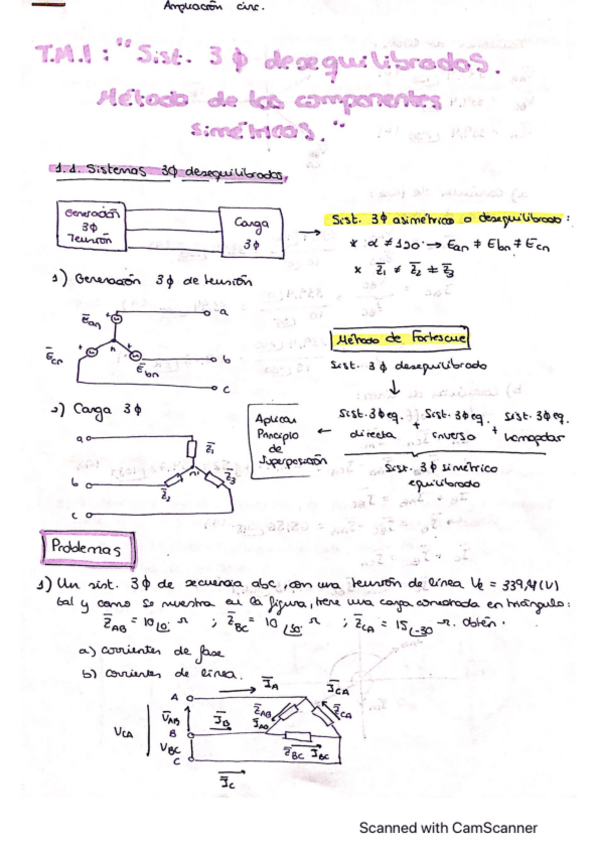 Ampliación circ.
T.M.1: "Sist. 3ϕ desequilibrados.
Método de las componentes
simétricas."
1.1. Sistemas 3ϕ desequilibrados.
Generación
3ϕ
Tensión
Carga
3ϕ
→ Sist. 3ϕ asimétrico o desequilibrado:
* α ≠ 120 → Ēan ≠ Ēbn ≠ Ēcn
* Z̄1 ≠ Z̄2 ≠ Z̄3
1) Generación 3ϕ de tensión
Ēan
a
Ēcn
n
Ēbn
b
c
Método de Fortescue
Sist. 3ϕ desequilibrado
↓
Sist. 3ϕ eq. directa + Sist. 3ϕ eq. inversa + Sist. 3ϕ eq. homopolar
Sist. 3ϕ simétrico
equilibrado
←
Aplicar
Principio
de
Superposición
2) Carga 3ϕ
a
Z̄1
n'
Z̄3
b
Z̄2
c
Problemas
1) Un sist. 3ϕ de secuencia abc, con una tensión de línea VL = 339,41 (V)
tal y como se muestra en la figura, tiene una carga conectada en triángulo:
Z̄AB = 10∠0° Ω ; Z̄BC = 10∠30° Ω ; Z̄CA = 15∠-30 Ω. Obtén:
a) corrientes de fase
b) corrientes de línea.
ĪA
ĪCA
A
V̄AB
ĪB
Z̄AB
ĪAB
Z̄CA
VCA
B
V̄BC
Z̄BC
ĪBC
C
ĪC
Scanned with CamScanner